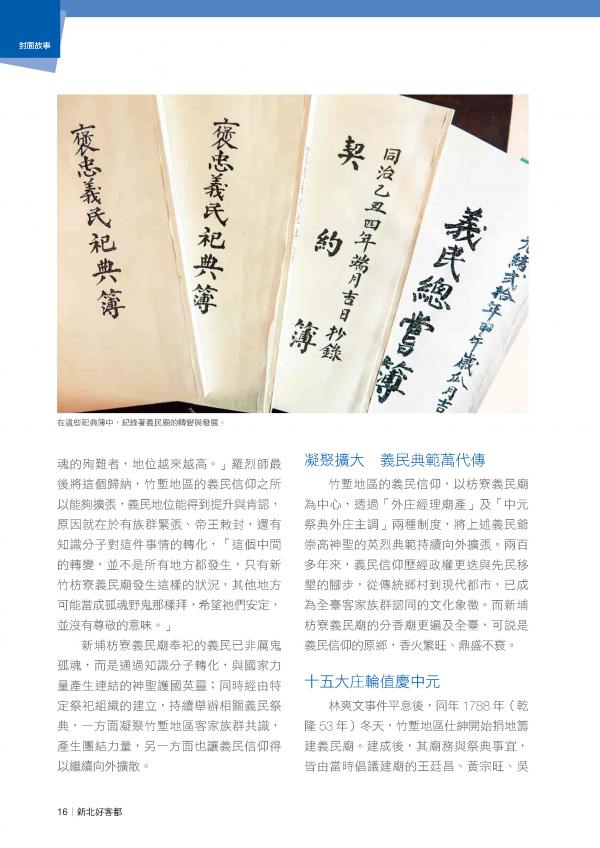 封面故事
褒忠義民祀典簿
褒忠義民祀典簿
同治乙丑四年端月吉日抄錄
契約簿
義民總嘗簿
光緒貳拾年甲午歲瓜月吉
在這些祀典簿中，紀錄著義民廟的轉變與發展。
魂的殉難者，地位越來越高。」羅烈師最
後將這個歸納，竹塹地區的義民信仰之所
以能夠擴張，義民地位能得到提升與肯認，
原因就在於有族群緊張、帝王敕封，還有
知識分子對這件事情的轉化，「這個中間
的轉變，並不是所有地方都發生，只有新
竹枋寮義民廟發生這樣的狀況，其他地方
可能當成孤魂野鬼那樣拜，希望祂們安定，
並沒有尊敬的意味。」
新埔枋寮義民廟奉祀的義民已非厲鬼
孤魂，而是通過知識分子轉化，與國家力
量產生連結的神聖護國英靈；同時經由特
定祭祀組織的建立，持續舉辦相關義民祭
典，一方面凝聚竹塹地區客家族群共識，
產生團結力量，另一方面也讓義民信仰得
以繼續向外擴散。
凝聚擴大　義民典範萬代傳
竹塹地區的義民信仰，以枋寮義民廟
為中心，透過「外庄經理廟產」及「中元
祭典外庄主調」兩種制度，將上述義民爺
崇高神聖的英烈典範持續向外擴張。兩百
多年來，義民信仰歷經政權更迭與先民移
墾的腳步，從傳統鄉村到現代都市，已成
為全臺客家族群認同的文化象徵。而新埔
枋寮義民廟的分香廟更遍及全臺，可說是
義民信仰的原鄉，香火繁旺、鼎盛不衰。
十五大庄輪值慶中元
林爽文事件平息後，同年 1788 年（乾
隆 53 年）冬天，竹塹地區仕紳開始捐地籌
建義民廟。建成後，其廟務與祭典事宜，
皆由當時倡議建廟的王廷昌、黃宗旺、吳
16｜新北好客都